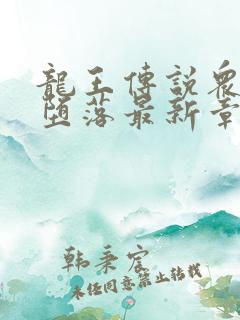 龍王傳說衆
墮落最新章
韩秉宸
未经同意禁止转载